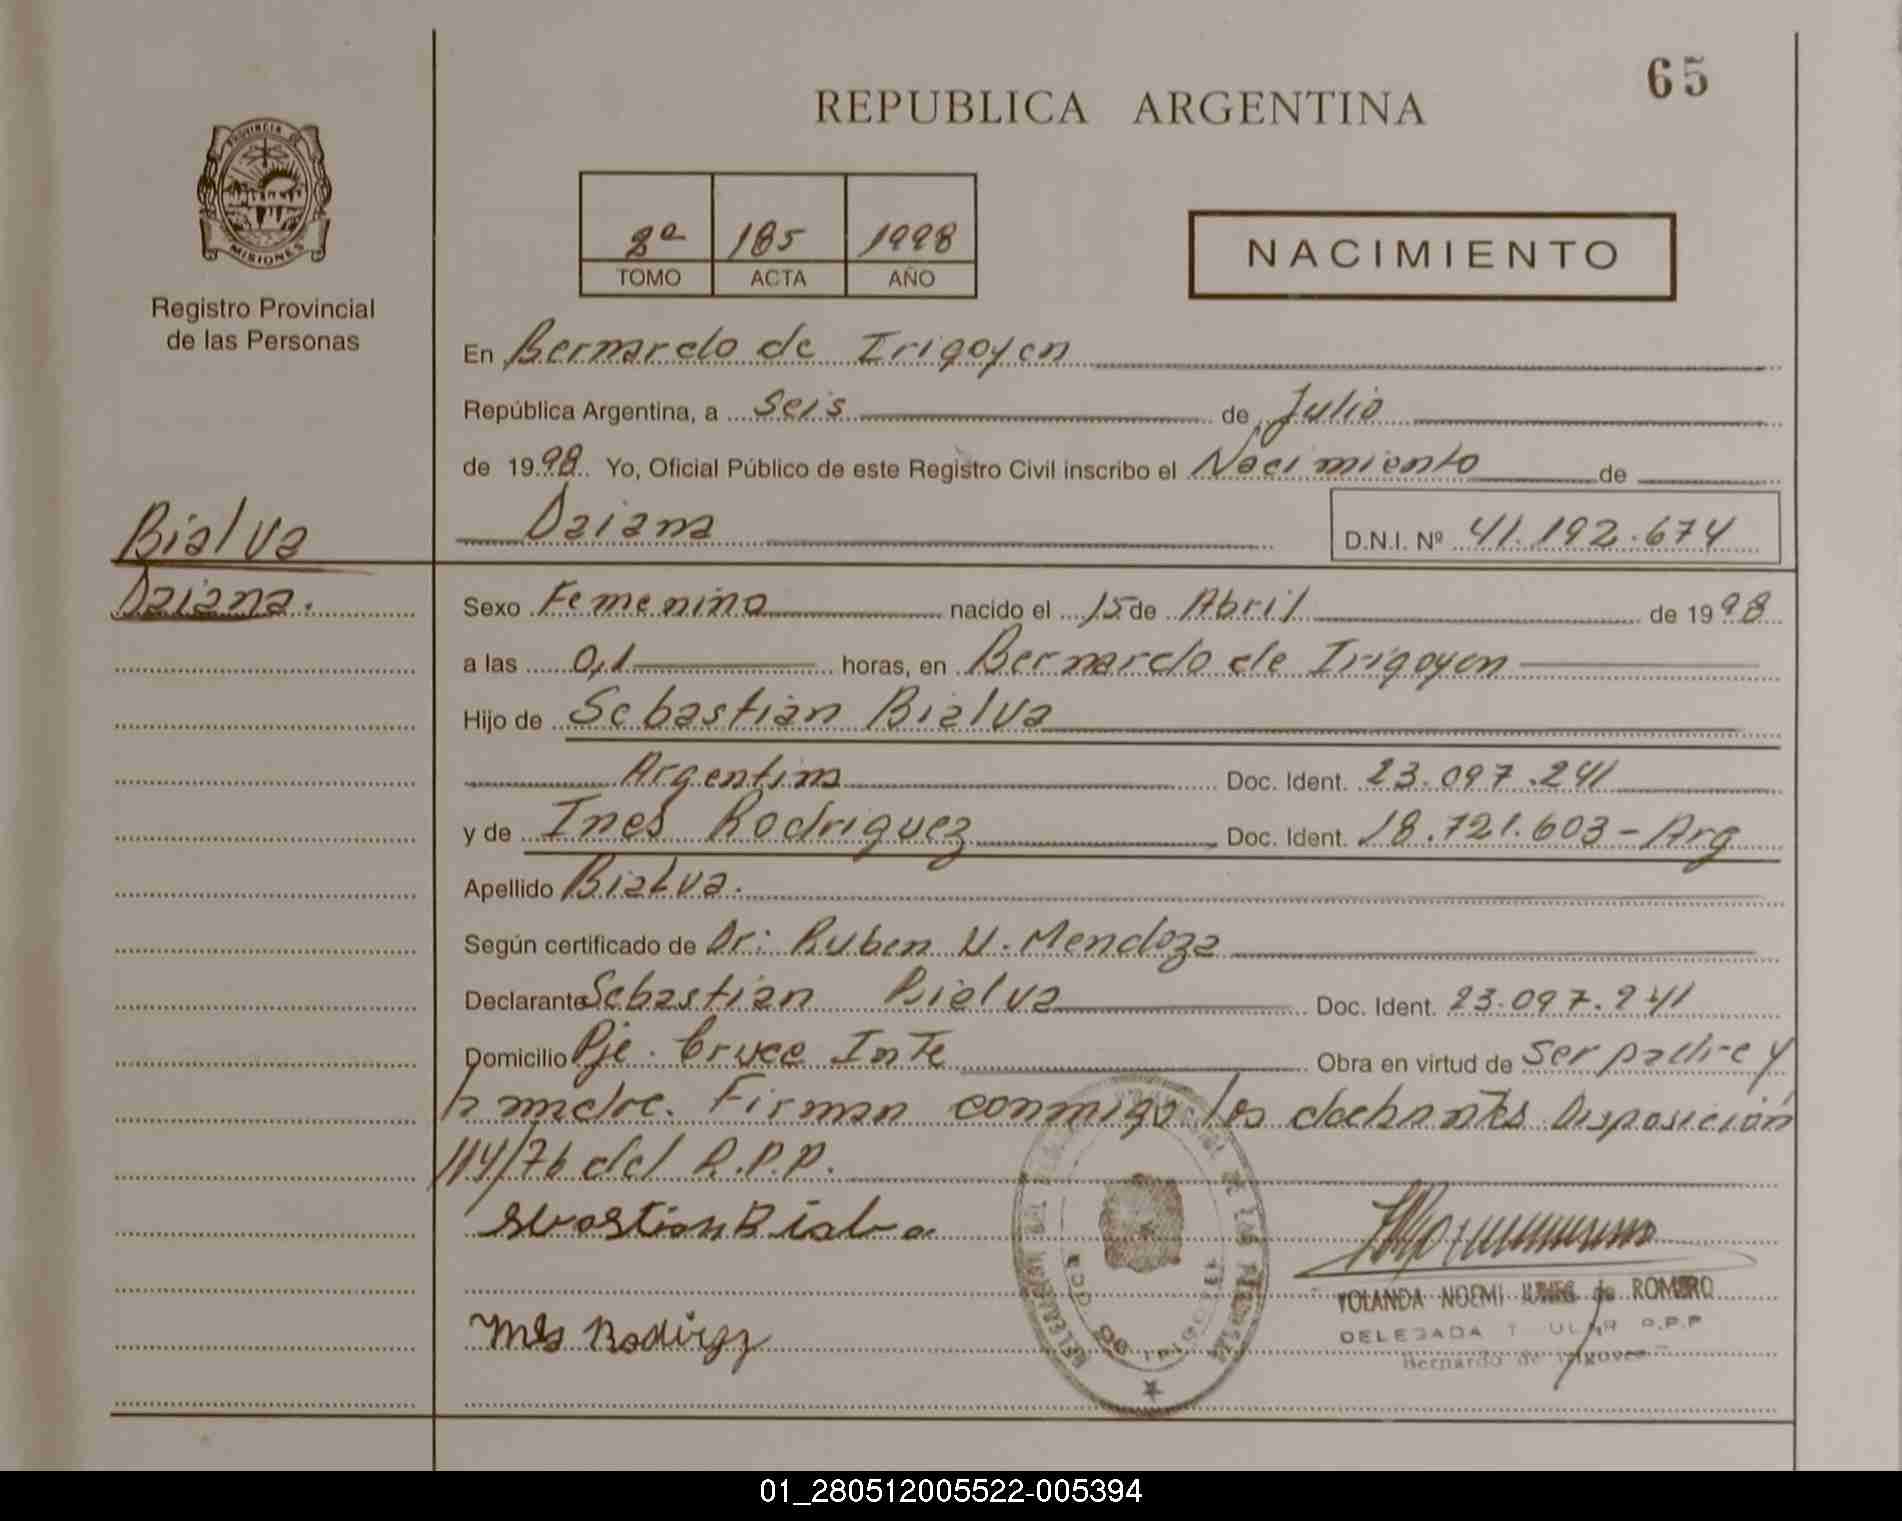 65
REPUBLICA ARGENTINA
PROVINCIA DE
MISIONES
Registro Provincial
de las Personas
2ª 185 1998
TOMO ACTA AÑO
NACIMIENTO
En Bernardo de Irigoyen
República Argentina, a Seis de Julio
de 1998 Yo, Oficial Público de este Registro Civil inscribo el Nacimiento de
Daiana D.N.I. Nº 41.192.674
Bialva
Daiana.
Sexo Femenino nacido el 15 de Abril de 1998
a las 0,1 horas, en Bernardo de Irigoyen
Hijo de Sebastian Bialva
Argentina Doc. Ident. 23.097.241
y de Ines Rodriguez Doc. Ident. 18.721.603 - Arg
Apellido Bialva.
Según certificado de Dr: Ruben U. Mendoza
Declarante Sebastian Bialva Doc. Ident. 23.097.241
Domicilio Pje. Cruce Inte Obra en virtud de ser padre y
la madre. Firman conmigo los declarantes Disposición
114/76 del R.P.P.
Sebastian Bialva
Ines Rodriguez
YOLANDA NOEMI de ROMERO
DELEGADA TITULAR R.P.P
Bernardo de Irigoyen
01_280512005522-005394